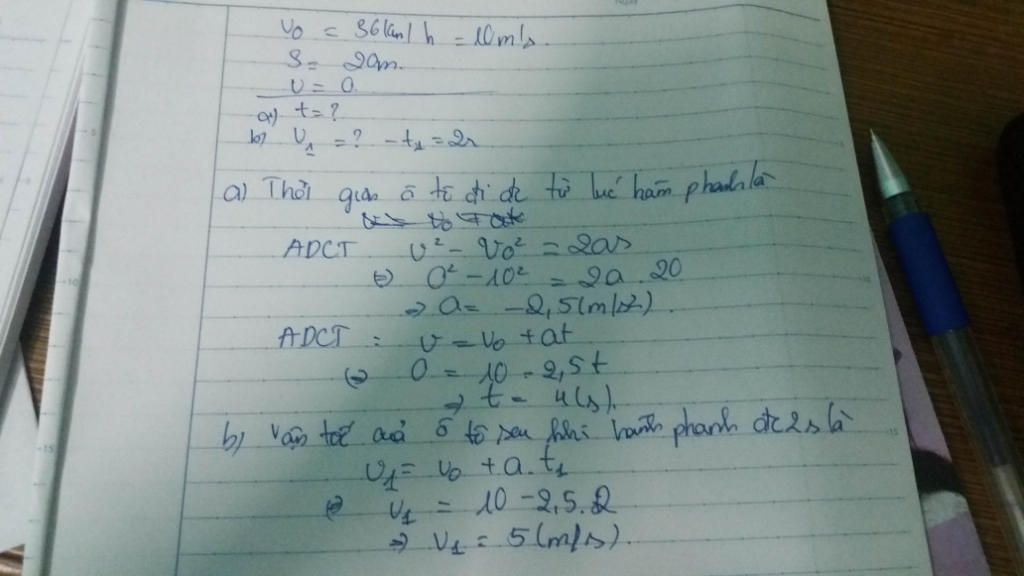 v₀ = 36km/h = 10m/s.
S = 20m.
v = 0
a) t = ?
b) v₁ = ? - t₁ = 2s
a) Thời gian ô tô đi đc từ lúc hãm phanh là
v = v₀ + at
ADCT v² - v₀² = 2as
⇔ 0² - 10² = 2a.20
⇒ a = -2,5(m/s²).
ADCT : v = v₀ + at
⇔ 0 = 10 - 2,5t
⇒ t = 4(s).
b) Vận tốc của ô tô sau khi hãm phanh đc 2s là
v₁ = v₀ + a.t₁
⇔ v₁ = 10 - 2,5.2
⇒ v₁ = 5(m/s).